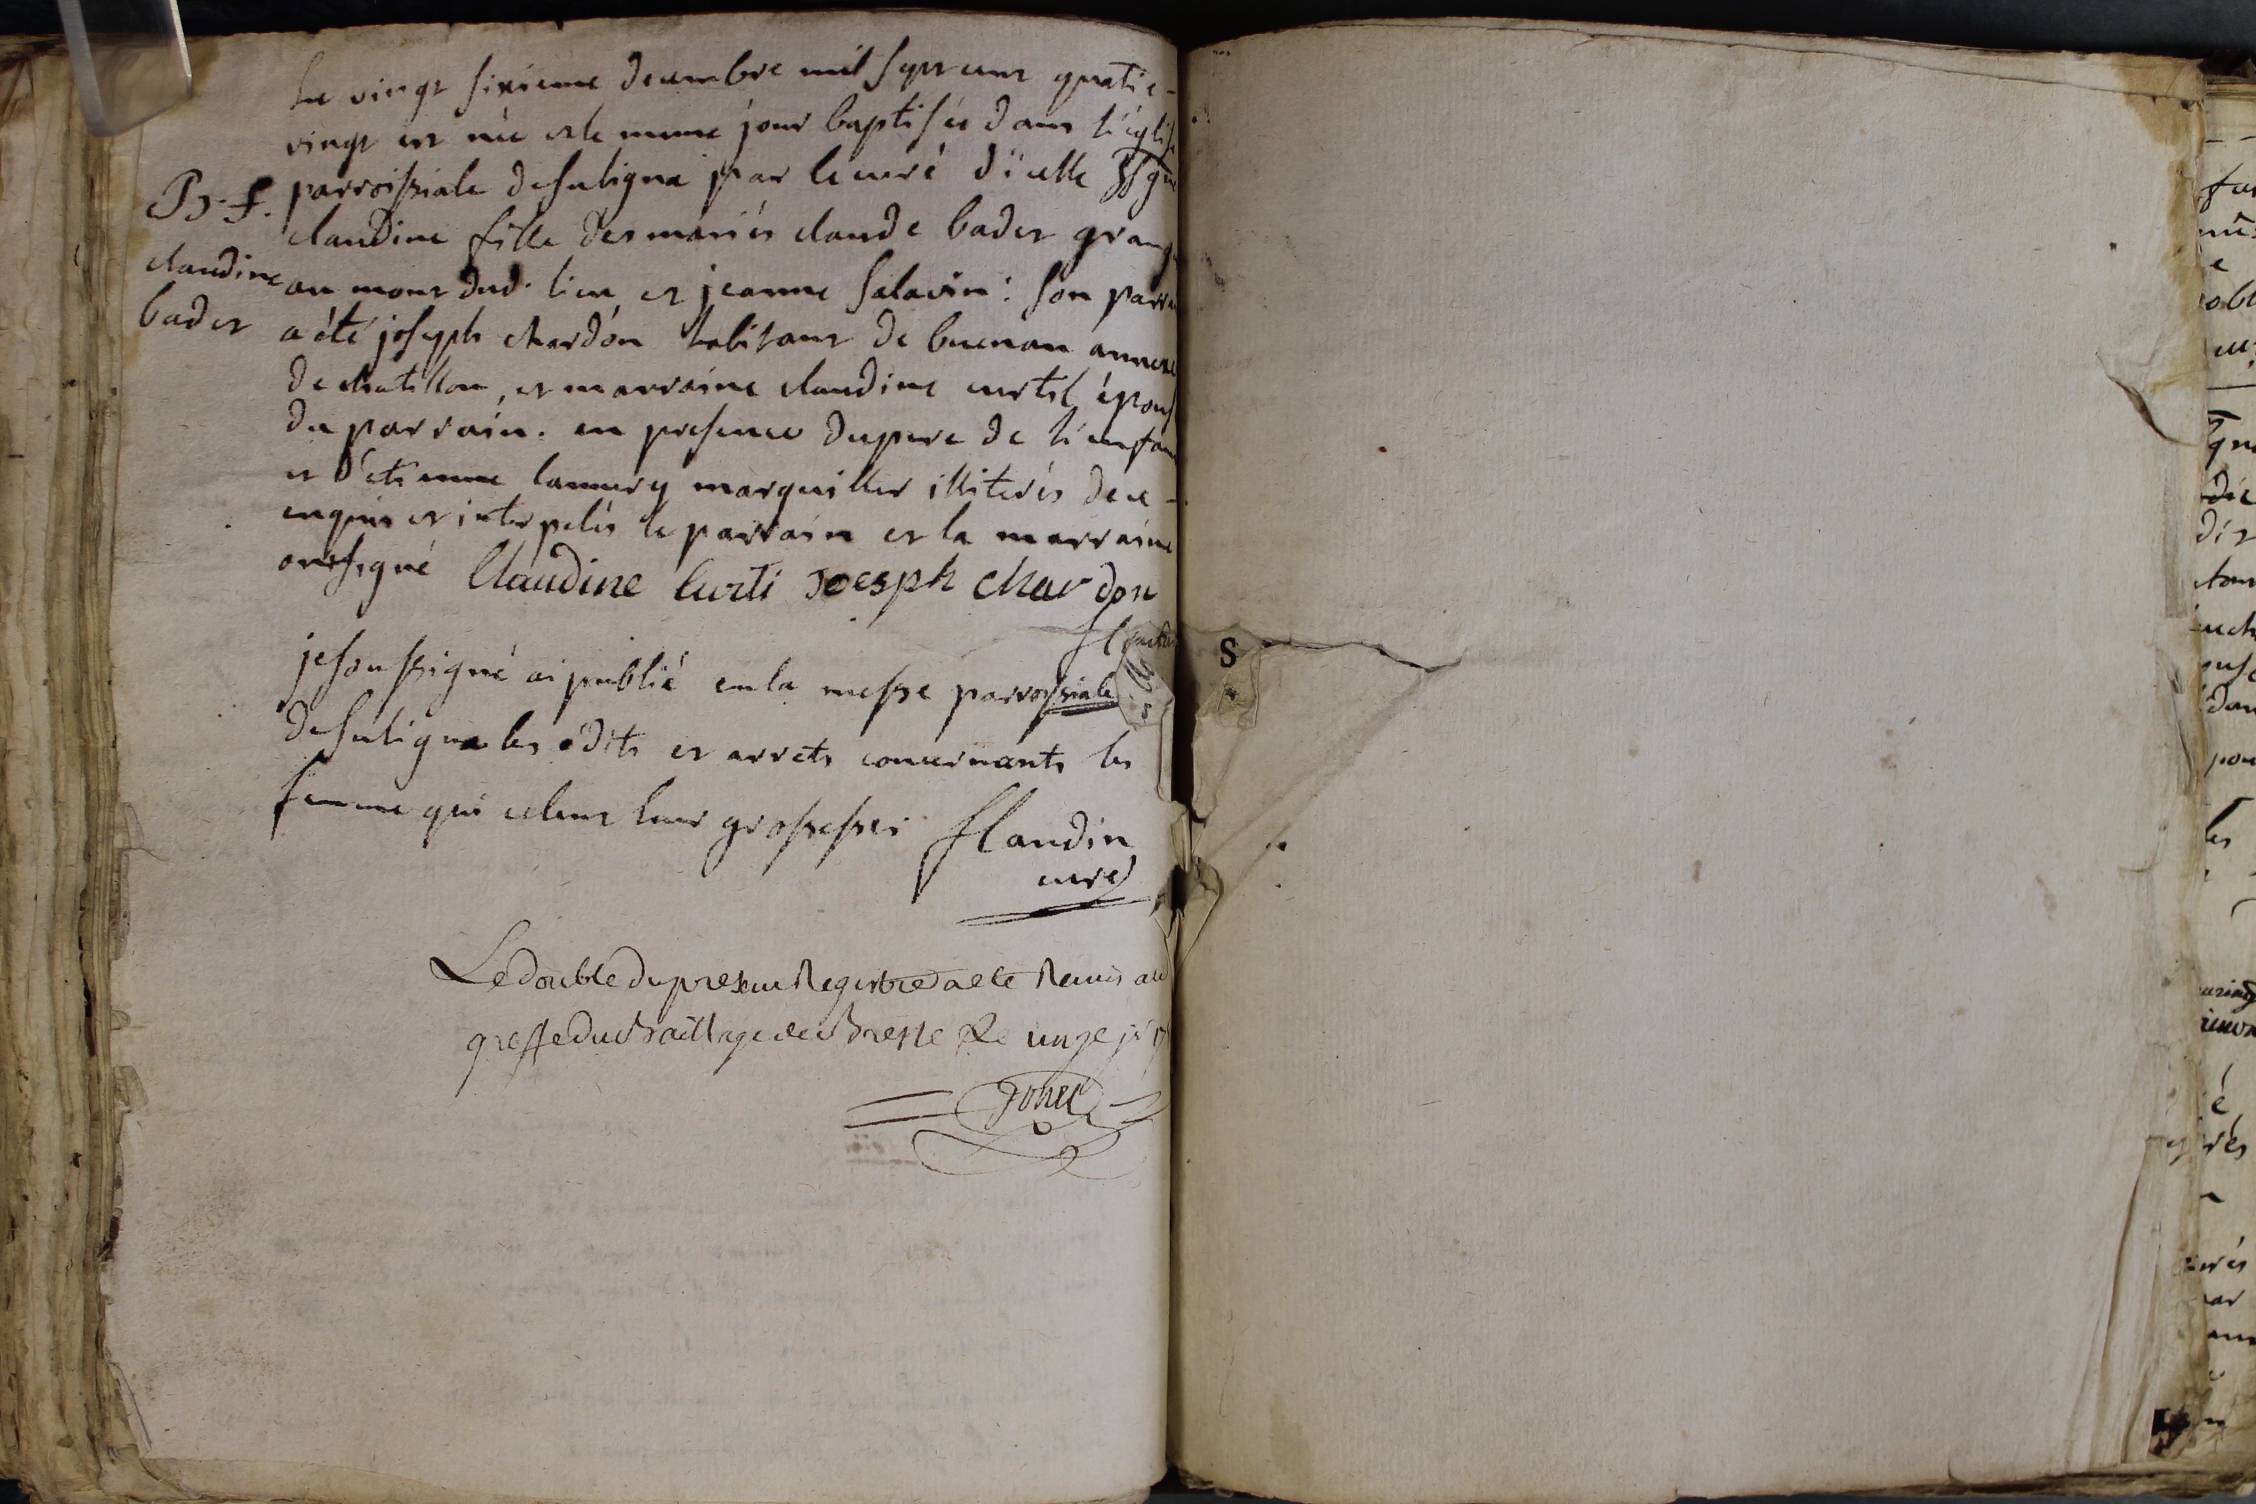 B. f.
claudine
bader
Le vingt sixieme decembre mil sept cent quatre-
vingt est née et le meme jour baptisée dans l'église
parroissiale de suligna par le curé d'icelle ssgné
claudine fille des mariés claude bader grang
au mont dud. lieu et jeanne salavin: son parra
a été joseph chardon habitant de buenan annexe
de chatillon, et marraine claudine curtil épous
du parrain. en presence du pere de l'enfan
et d'etienne lannery marguiller illiterés de ce-
enquis et interpelés le parrain et la marraine
ont signé Claudine Curti Joesph chardon
je soussigné ai publié en la messe parroissiale
de suligna les édits et arrets concernants les
femme qui celent leur grossesses flandin
curé
Le double du present Registre a ete Remis au
greffe du Baillage de Bresse Le unze
S